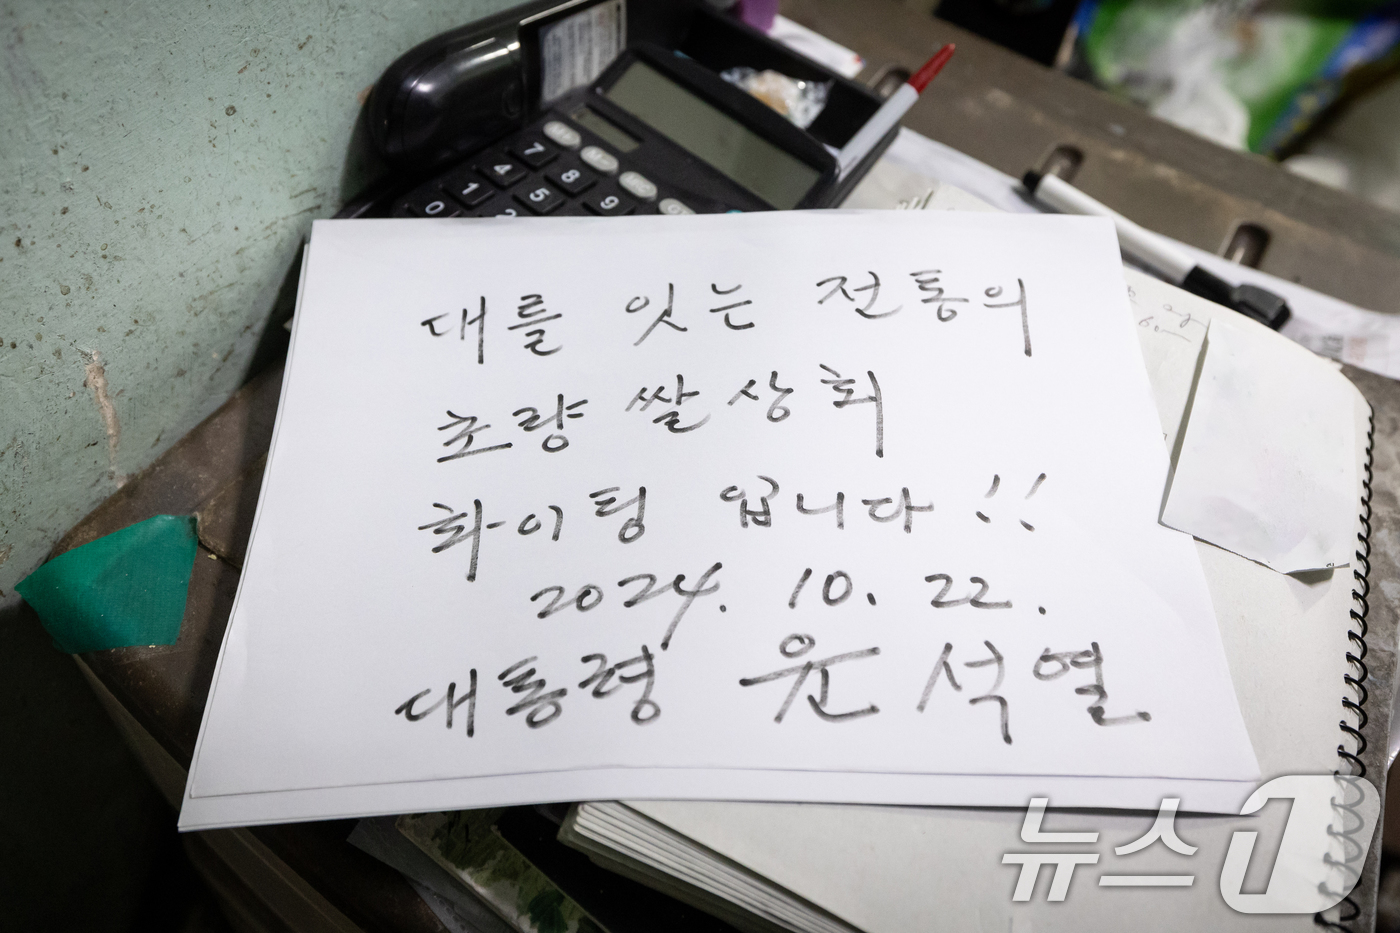 7
8
9
4
5
1
0
대를 잇는 전통의
초량 쌀상회
화이팅 입니다 !!
2024. 10. 22.
대통령 윤석열
뉴스1